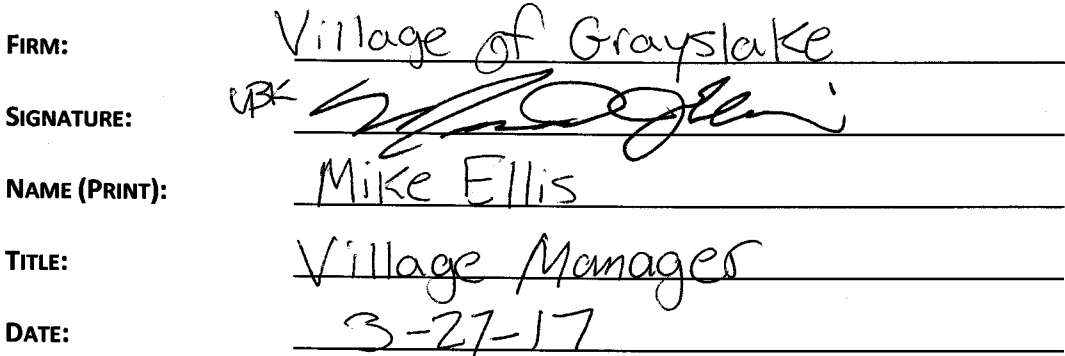 FIRM: Village of Grayslake
SIGNATURE:
NAME (PRINT): Mike Ellis
TITLE: Village Manager
DATE: 3-27-17